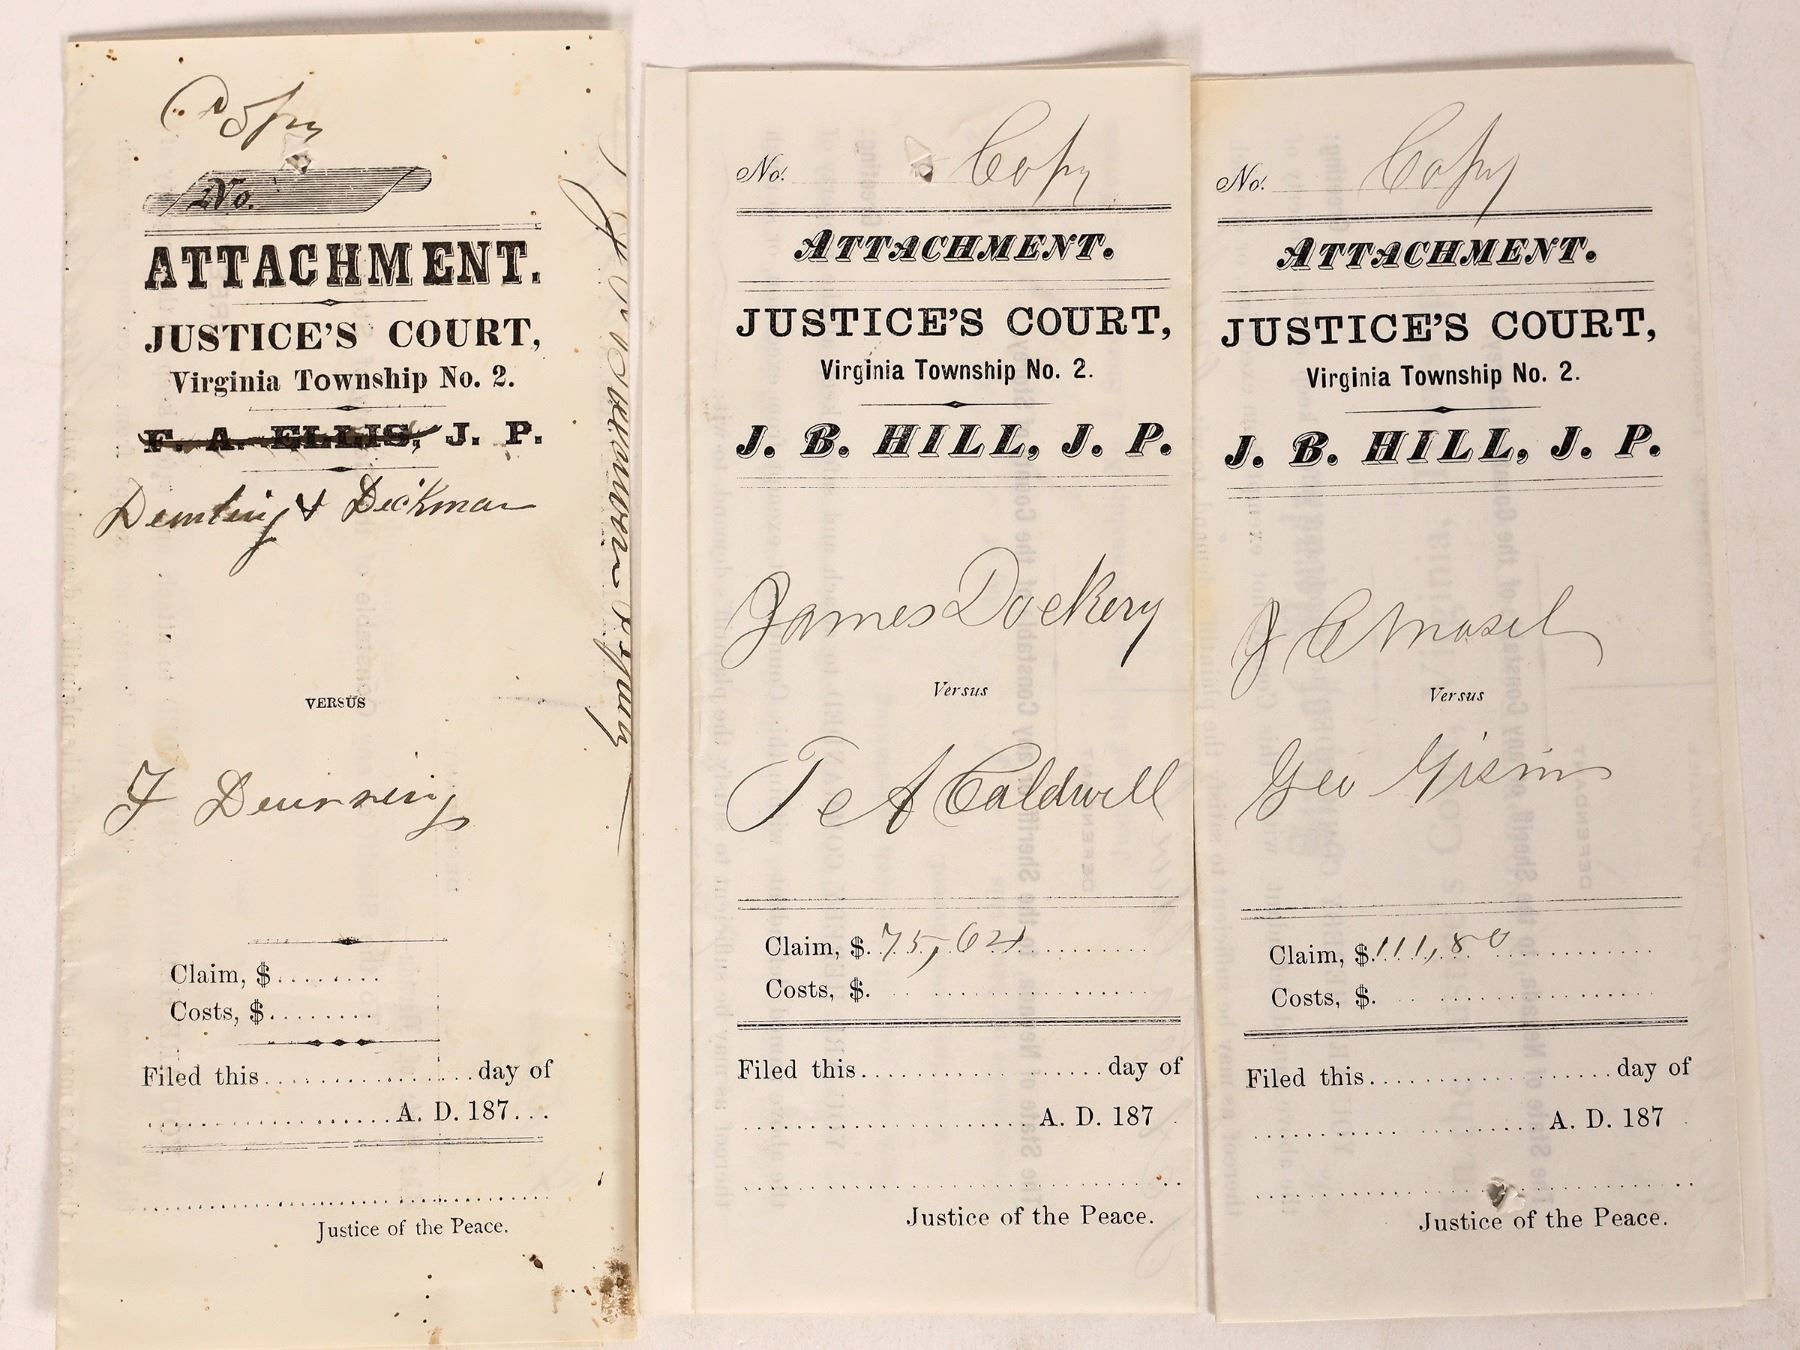 Copy
No.
ATTACHMENT.
JUSTICE'S COURT,
Virginia Township No. 2.
F. A. ELLIS, J. P.
& Deckman
VERSUS
F
Claim, $........
Costs, $........
Filed this................day of
................A. D. 187...
Justice of the Peace.
No. Copy
ATTACHMENT.
JUSTICE'S COURT,
Virginia Township No. 2.
J. B. HILL, J. P.
James Dockery
Versus
A Caldwell
Claim, $. 75,62
Costs, $.
Filed this................day of
................A. D. 187
Justice of the Peace.
No. Copy
ATTACHMENT.
JUSTICE'S COURT,
Virginia Township No. 2.
J. B. HILL, J. P.
J C Mosel
Versus
Geo
Claim, $111,80
Costs, $.
Filed this................day of
................A. D. 187
Justice of the Peace.